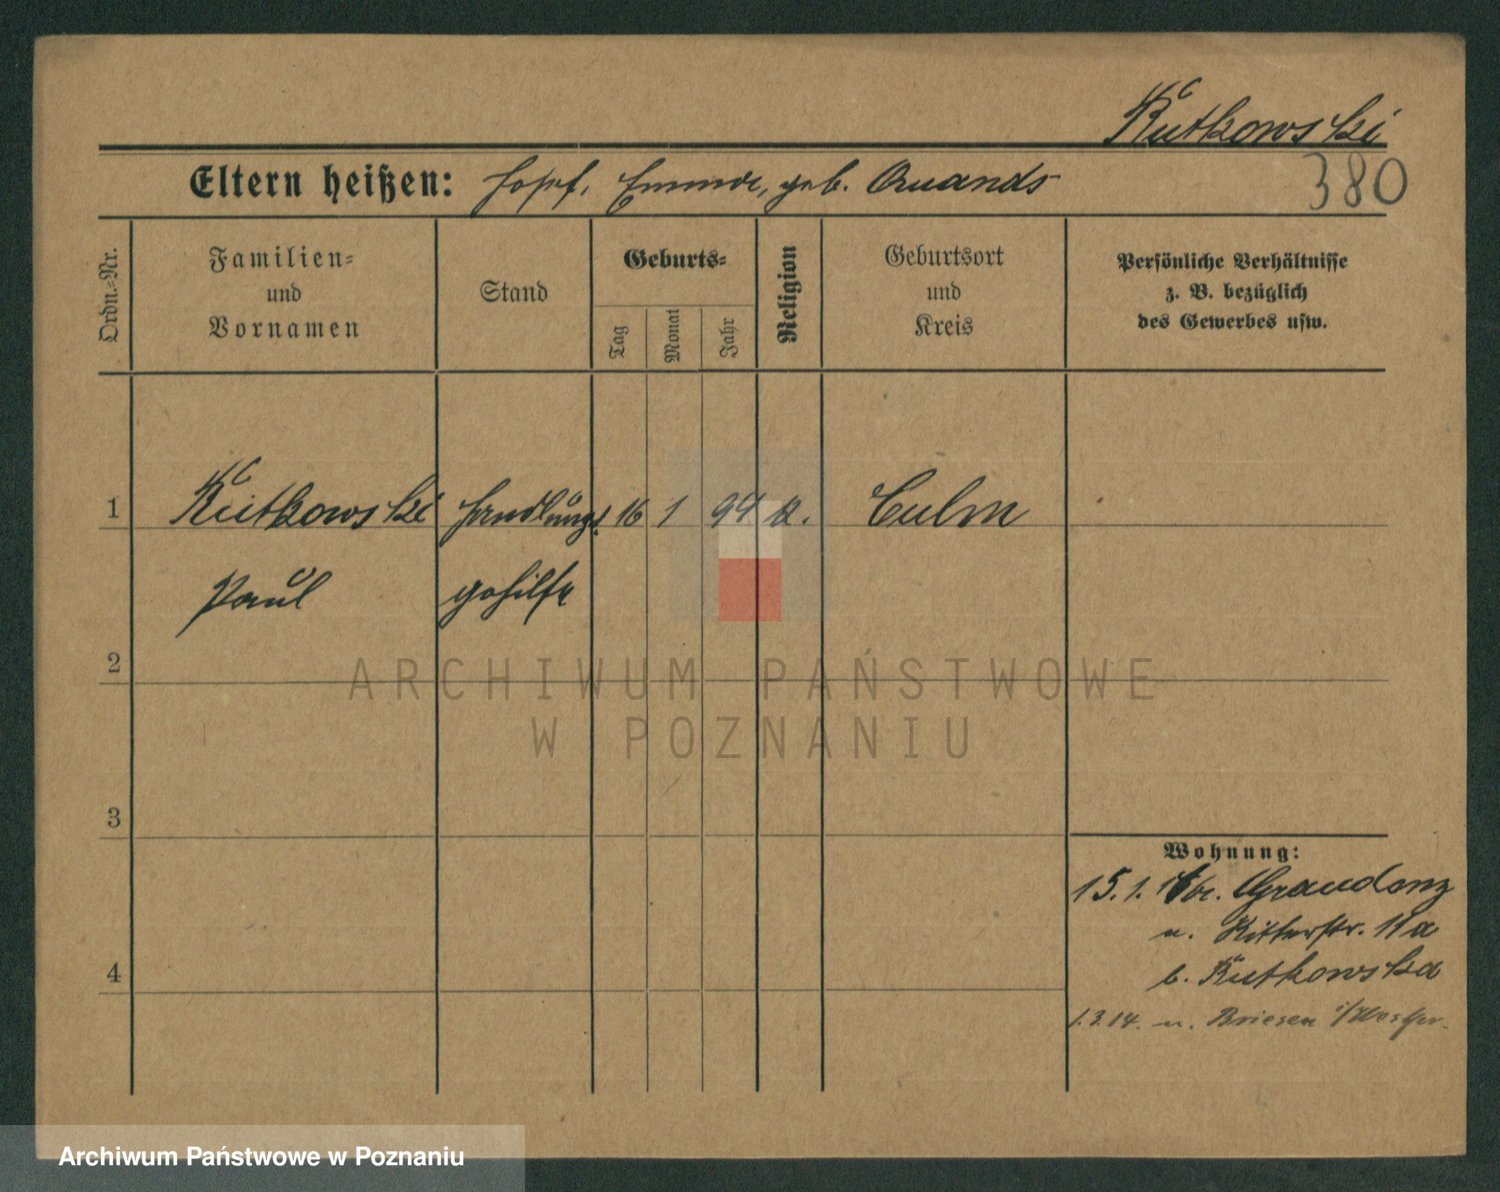 Rutkowski
Eltern heißen: Josef, Emma, geb. Quandt
380
Ordn.=Nr.
Familien=
und
Vornamen
Stand
Geburts=
Tag
Monat
Jahr
Religion
Geburtsort
und
Kreis
Persönliche Verhältnisse
z. B. bezüglich
des Gewerbes usw.
1 Rutkowski Handlungs 16 1 94 k. Culm
Paul gehilfe
2
ARCHIWUM PAŃSTWOWE
W POZNANIU
3
Wohnung:
15.1. Graudenz
n. Ritterstr. 11a
b. Rutkowska
4
1.3.14. n. Briesen
Archiwum Państwowe w Poznaniu